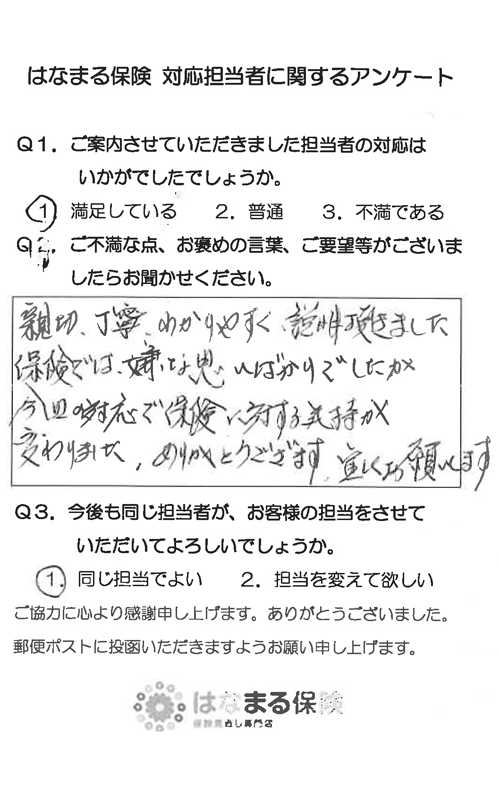 はなまる保険 対応担当者に関するアンケート
Q1. ご案内させていただきました担当者の対応は
いかがでしたでしょうか。
1. 満足している 2. 普通 3. 不満である
Q2. ご不満な点、お褒めの言葉、ご要望等がございま
したらお聞かせください。
親切、丁寧、わかりやすく、説明頂きました
保険では、嫌な思いばかりでしたが
今回の対応で保険に対する気持が
変わりました、ありがとうございます、宜しくお願いします
Q3. 今後も同じ担当者が、お客様の担当をさせて
いただいてよろしいでしょうか。
1. 同じ担当でよい 2. 担当を変えて欲しい
ご協力に心より感謝申し上げます。ありがとうございました。
郵便ポストに投函いただきますようお願い申し上げます。
はなまる保険
保険見直し専門店